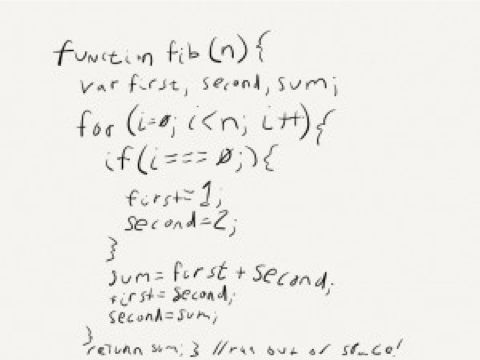 function fib(n){
var first, second, sum;
for (i=0; i<n; i++){
if(i=== 0;){
first=1;
second=2;
}
sum= first + second;
first= second;
second=sum;
}
return sum; } //ran out of space!